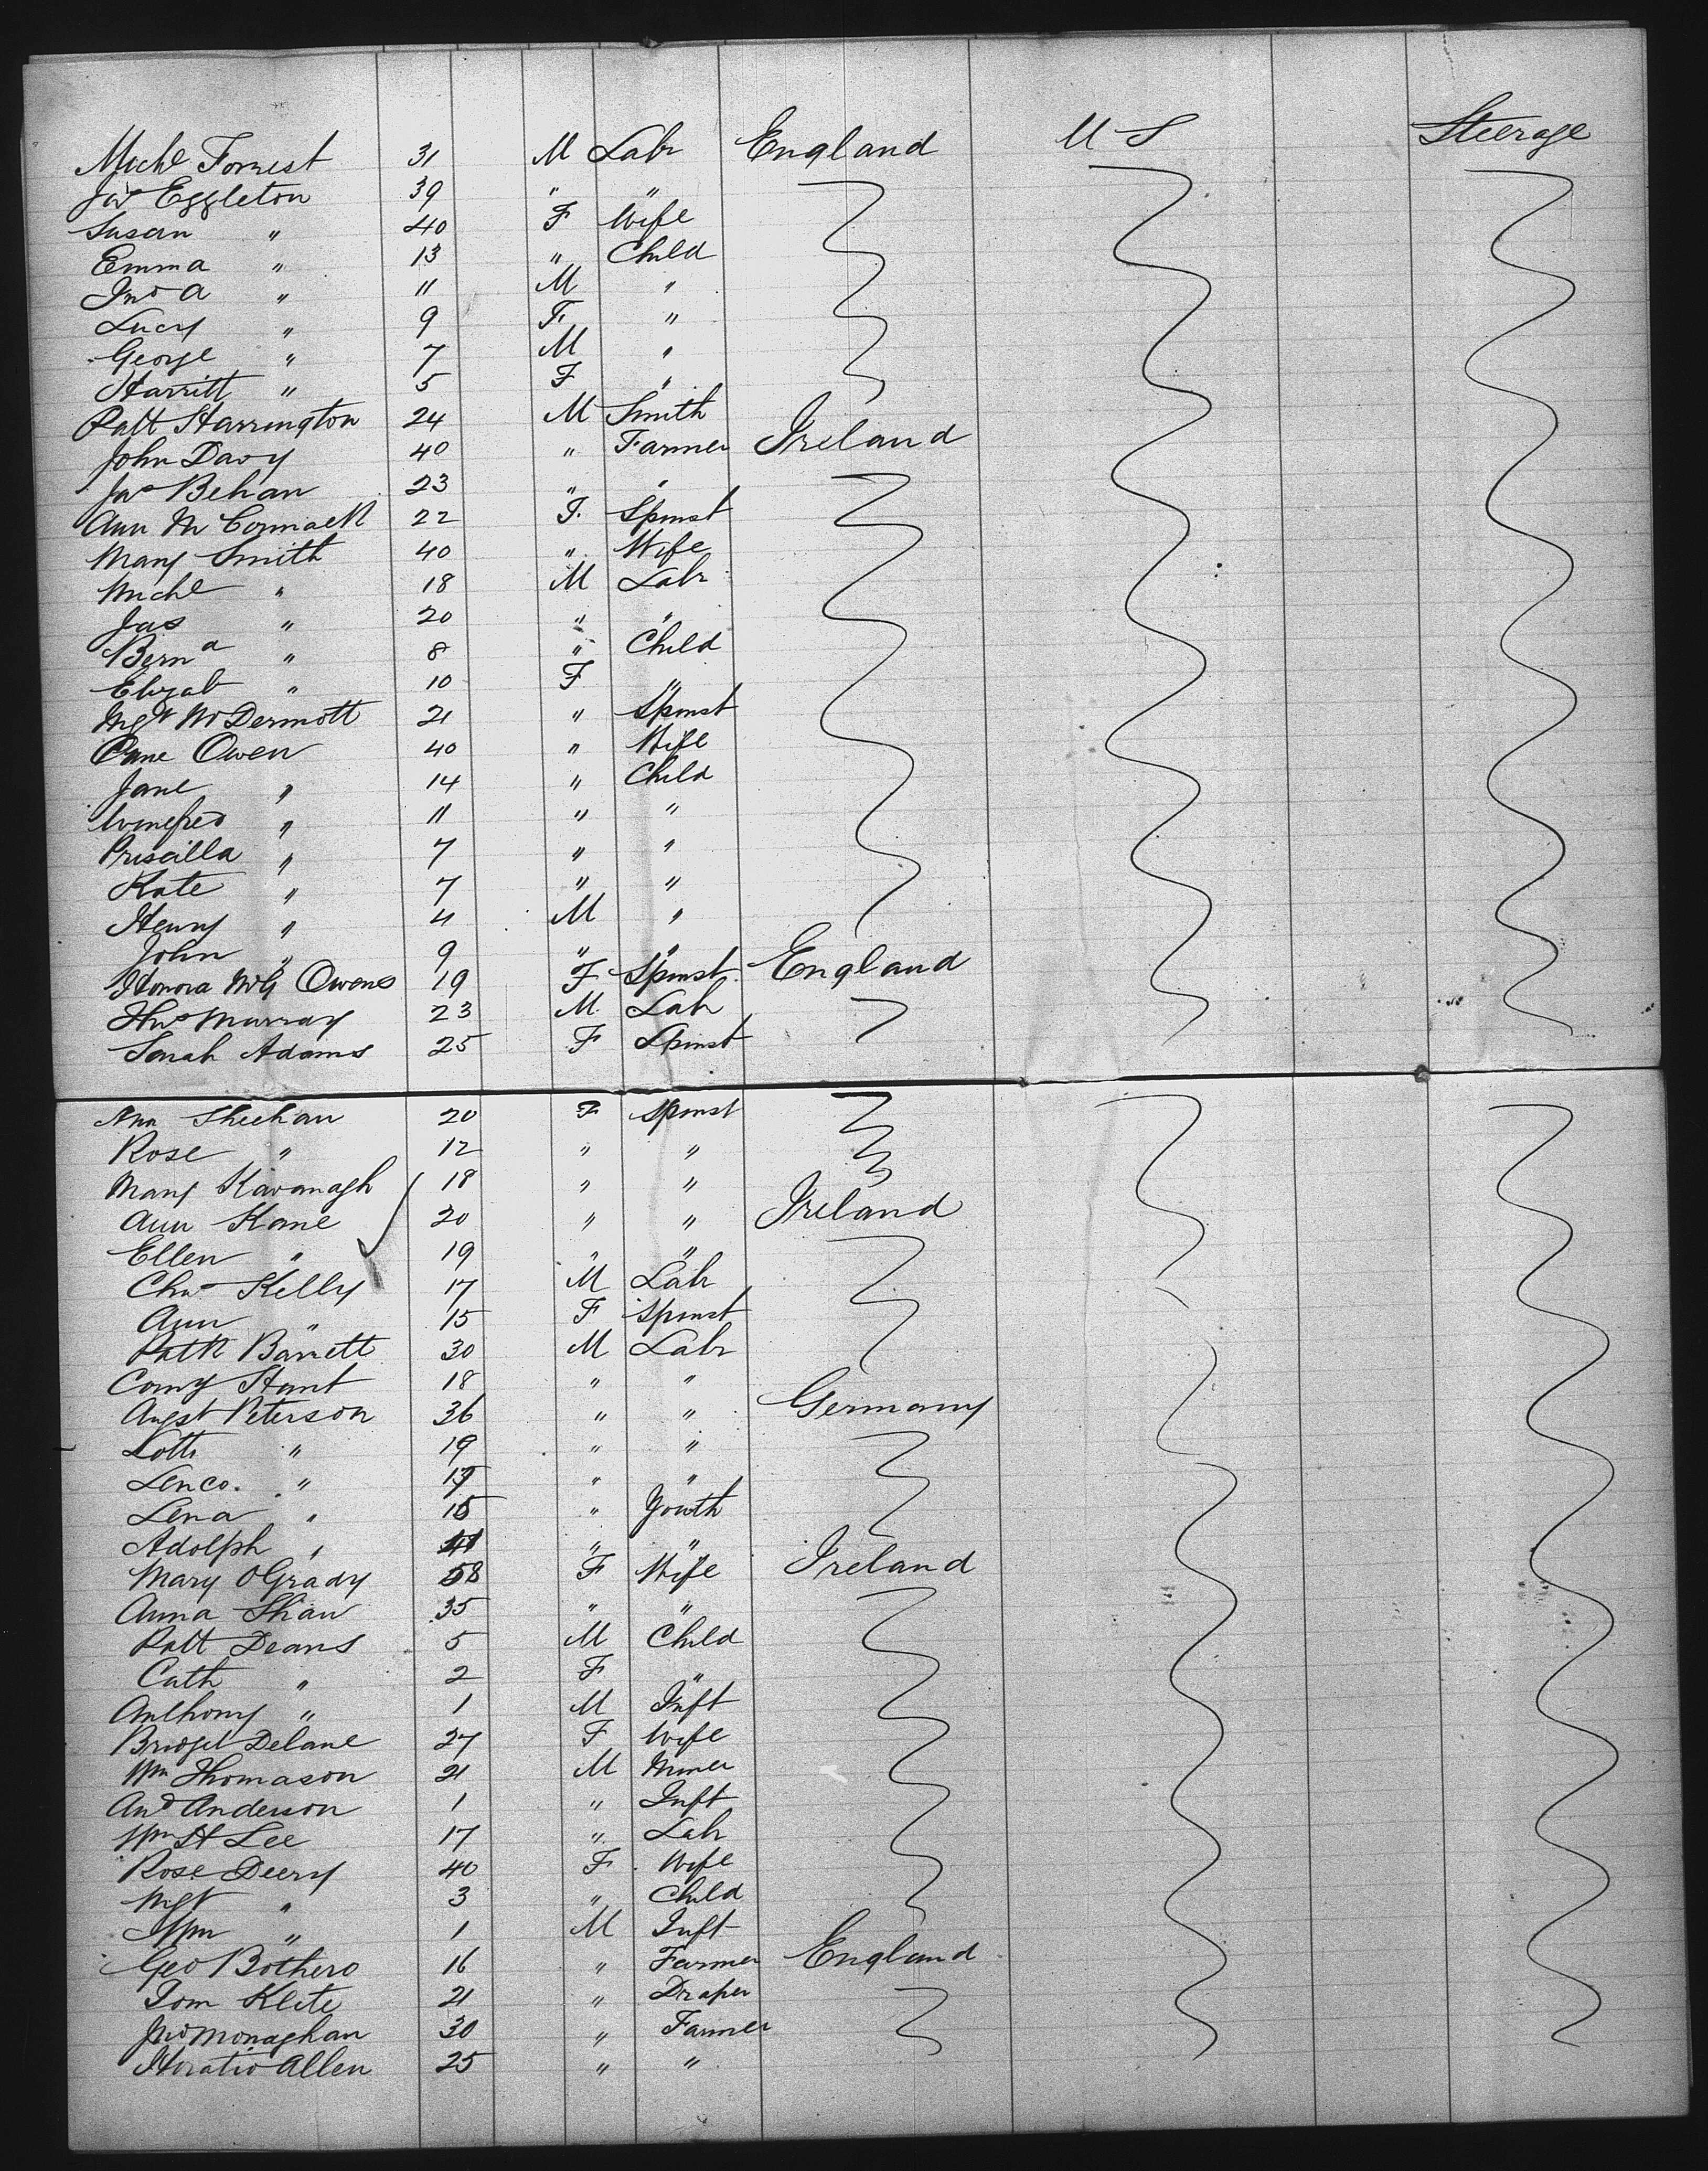 Michl Forrest 31 M Labr England U S Steerage
Jas Eggleton 39 " "
Susan " 40 F Wife
Emma " 13 " Child
Jno A " 11 M "
Lucy " 9 F "
George " 7 M "
Harritt " 5 F "
Patt Harrington 24 M Smith
John Davy 40 " Farmer Ireland
Jas Behan 23 " "
Ann McCormack 22 F Spinst
Mary Smith 40 " Wife
Michl " 18 M Labr
Jas " 20 " "
Bernd " 8 " Child
Elizab " 10 F "
Mgt McDermott 21 " Spinst
Owen 40 " Wife
Jane " 14 " Child
Winefred " 11 " "
Priscilla " 7 " "
Kate " 7 " "
Henry " 4 M "
John " 9 " "
Honora McG Owens 19 F Spinst England
Thos Murray 23 M Labr
Sarah Adams 25 F Spinst
Ann Sheehan 20 F Spinst
Rose " 12 " "
Mary Kavanagh 18 " "
Ann Kane 20 " " Ireland
Ellen " 19 " "
Chas Kelly 17 M Labr
Ann " 15 F Spinst
Patk Barrett 30 M Labr
Hant 18 " "
Augst Peterson 36 " " Germany
Lotti " 19 " "
Lenco. " " "
Lena " 15 " Youth
Adolph " " "
Mary OGrady 58 F Wife Ireland
Anna Shaw 35 " "
Patt Deans 5 M Child
Cath " 2 F "
Anthony " 1 M Inft
Bridget Delane 27 F Wife
Wm Thomason 21 M Miner
And Anderson 1 " Inft
Wm H Lee 17 " Labr
Rose Deery 40 F Wife
Mgt " 3 " Child
Wm " 1 M Inft
Geo Bothero 16 " Farmer England
Tom Klete 21 " Draper
Jno Monaghan 30 " Farmer
Horatio Allen 25 " "